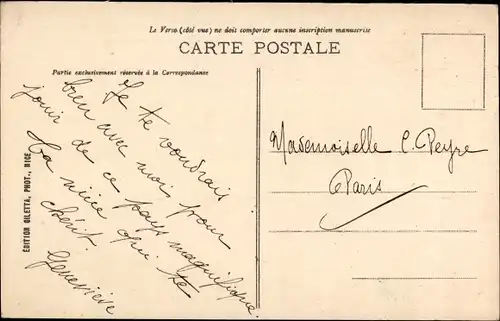 Le Verso (côté vue) ne doit comporter aucune inscription manuscrite
CARTE POSTALE
Partie exclusivement réservée à la Correspondance
Je te voudrais
bien avec moi pour
jouir de ce pays magnifique
Ta nièce qui te
chérit.
Geneviève
Mademoiselle C. Peyre
Paris
ÉDITION GILETTA, PHOT., NICE